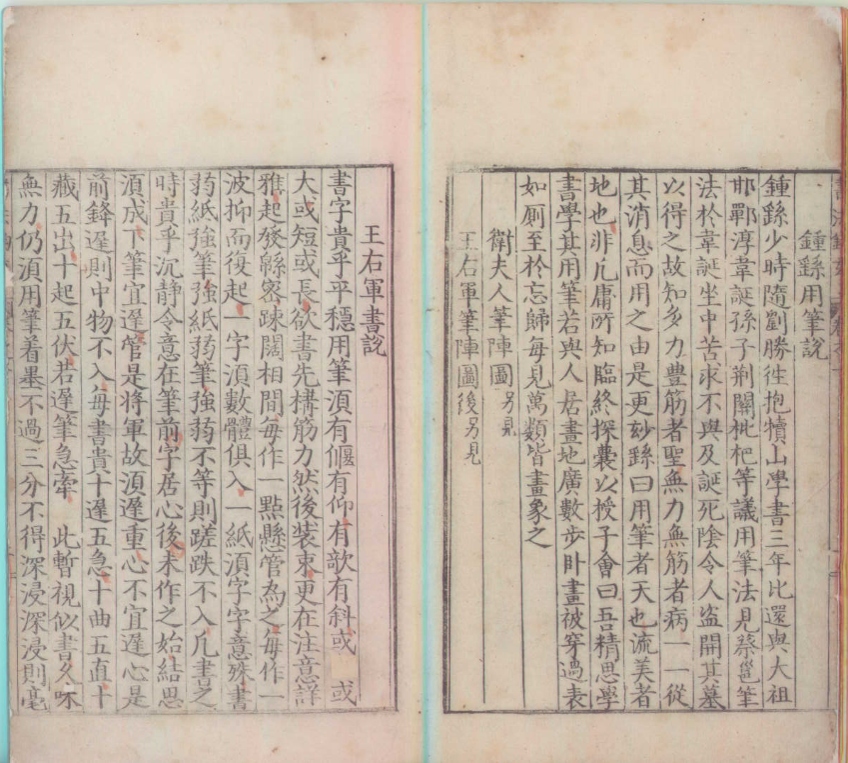 鍾繇用筆說
鍾繇少時隨劉勝徃抱犢山學書三年比還與大祖
邯鄲淳韋誕孫子荆關枇杷等議用筆法見蔡邕筆
法於韋誕坐中苦求不與及誕死陰令人盗開其墓
以得之故知多力豊筋者聖無力無筋者病一一從
其消息而用之由是更妙繇曰用筆者天也流美者
地也非凡庸所知臨終探囊以授子會曰吾精思學
書學其用筆若與人居畫地廣數步卧畫被穿過表
如厠至於忘歸每見萬類皆畫象之
衛夫人筆陣圖另見
王右軍筆陣圖後另見
王右軍書說
書字貴乎平穩用筆湏有偃有仰有欹有斜或 或
大或短或長欲書先構筋力然後装束更在注意詳
雅起發緜密踈闊相間每作一點懸管為之每作一
波抑而復起一字湏數體俱入一紙湏字字意殊書
弱紙強筆強紙弱筆強弱不等則蹉跌不入凡書之
時貴乎沉静令意在筆前字居心後未作之始結思
湏成下筆宜遲管是將軍故湏遲重心不宜遲心是
前鋒遲則中物不入每書貴十遲五急十曲五直十
藏五出十起五伏若遲筆急牽 此暫視似書久味
無力仍湏用筆着墨不過三分不得深浸深浸則毫